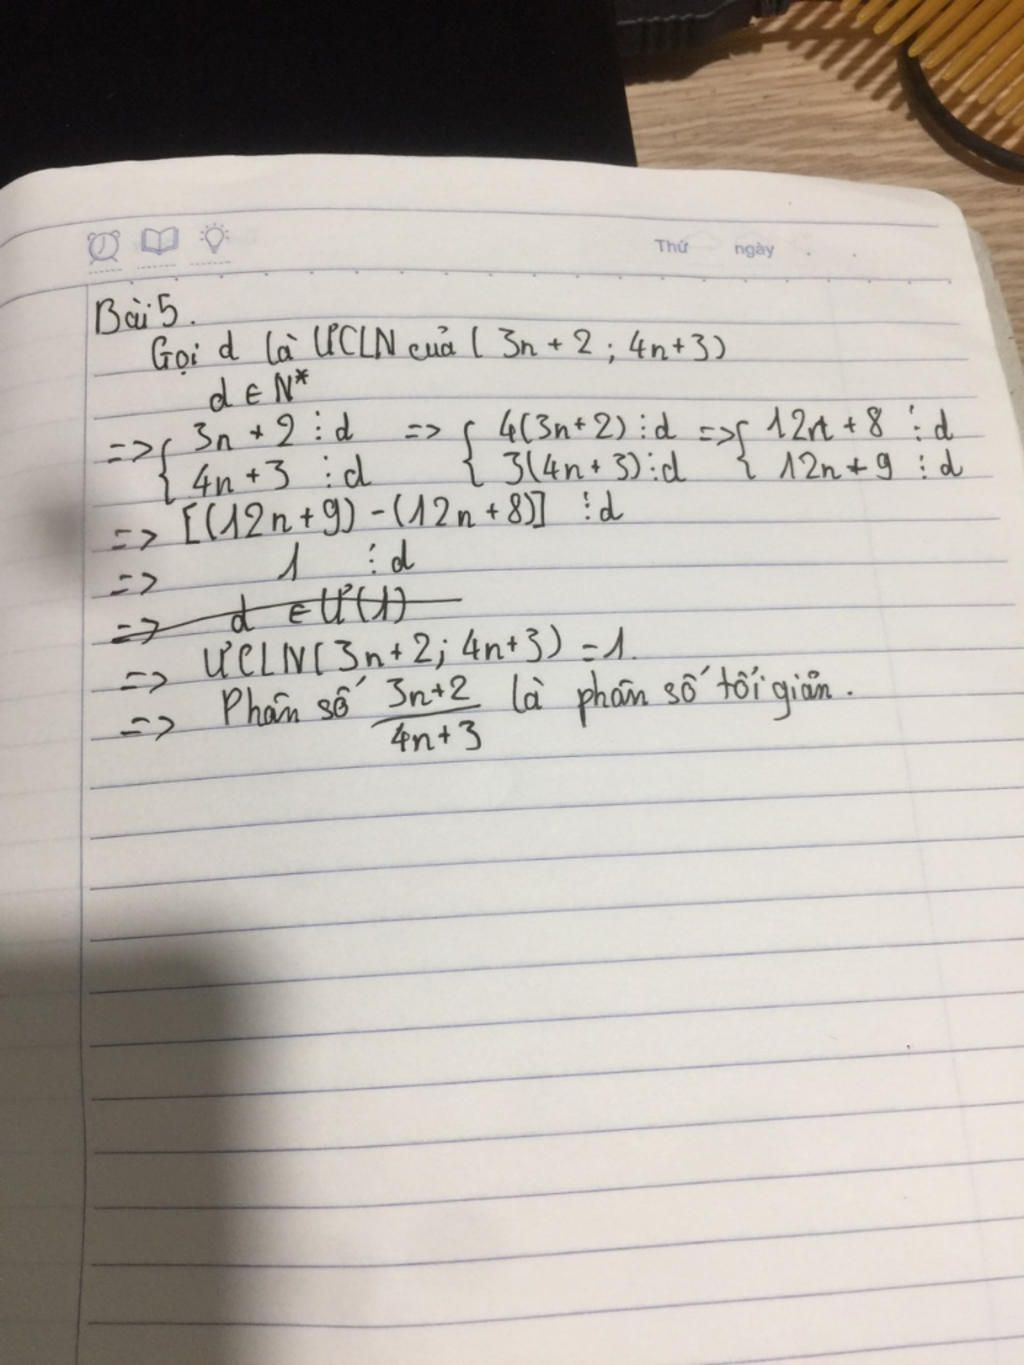 Thứ ngày
Bài 5.
Gọi d là ƯCLN của ( 3n + 2 ; 4n+3)
d ∈ N*
=> { 3n + 2 ⋮ d => { 4(3n+2) ⋮ d => { 12n + 8 ⋮ d
4n + 3 ⋮ d 3(4n+3) ⋮ d 12n + 9 ⋮ d
=> [(12n+9) - (12n+8)] ⋮ d
=> 1 ⋮ d
=> d ∈ Ư(1)
=> ƯCLN(3n+2; 4n+3) = 1.
=> Phân số 3n+2/4n+3 là phân số tối giản.